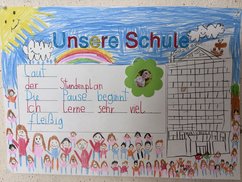 Unsere Schule
Lauf
der Stundenplan
Die Pause beginnt
Ich Lerne sehr viel
fleißig